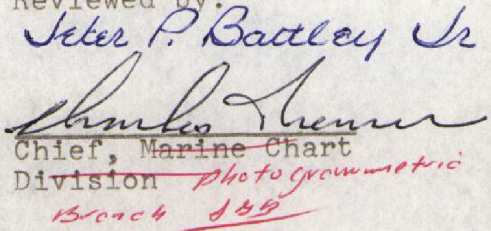 Reviewed by:
Jeter P. Battley Jr
Charles Theurer
Chief, Marine Chart
Division Photogrammetric
Branch